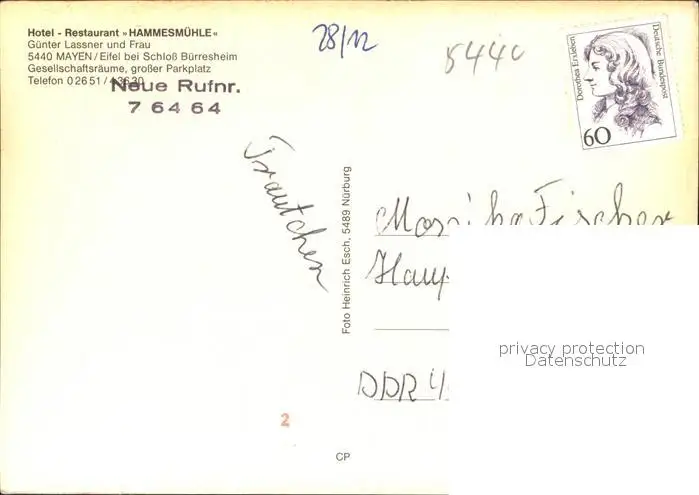 Hotel - Restaurant »HAMMESMÜHLE«
Günter Lassner und Frau
5440 MAYEN/Eifel bei Schloß Bürresheim
Gesellschaftsräume, großer Parkplatz
Telefon 02651/43630
Neue Rufnr.
7 64 64
28/12
5440
Dorothea Erxleben
Deutsche Bundespost
60
Trautchen
Foto Heinrich Esch, 5489 Nürburg
Monika Fischer
Haup
privacy protection
Datenschutz
DDR 4
2
CP